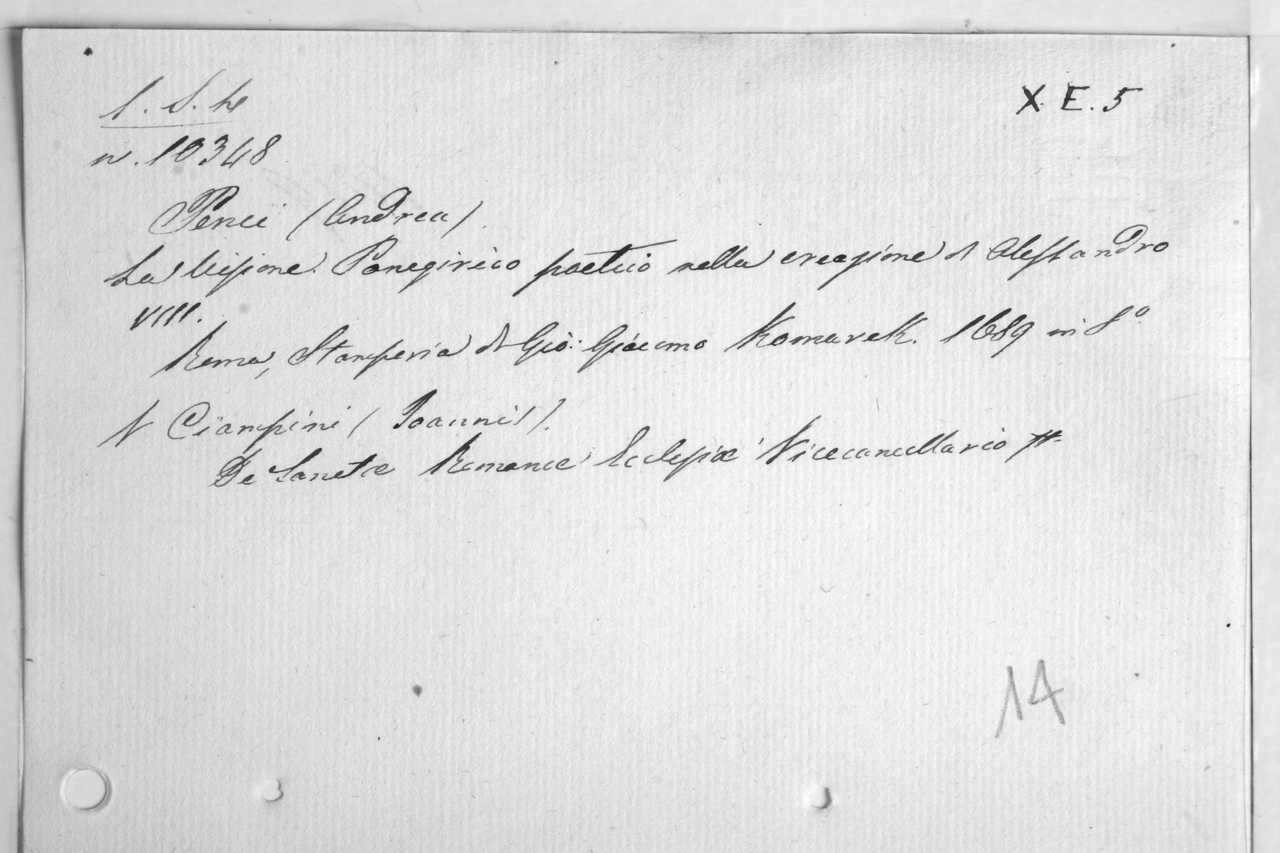 X. E. 5
n. 10348
Penci (Andrea).
La Visione. Panegirico poetico nella creazione di Alessandro
VIII.
Roma, Stamperia di Gio: Giacomo Komarek. 1689 in 8°
V Ciampini (Joannis).
De Sanctæ Romanæ Ecclesiæ Vicecancellario
14